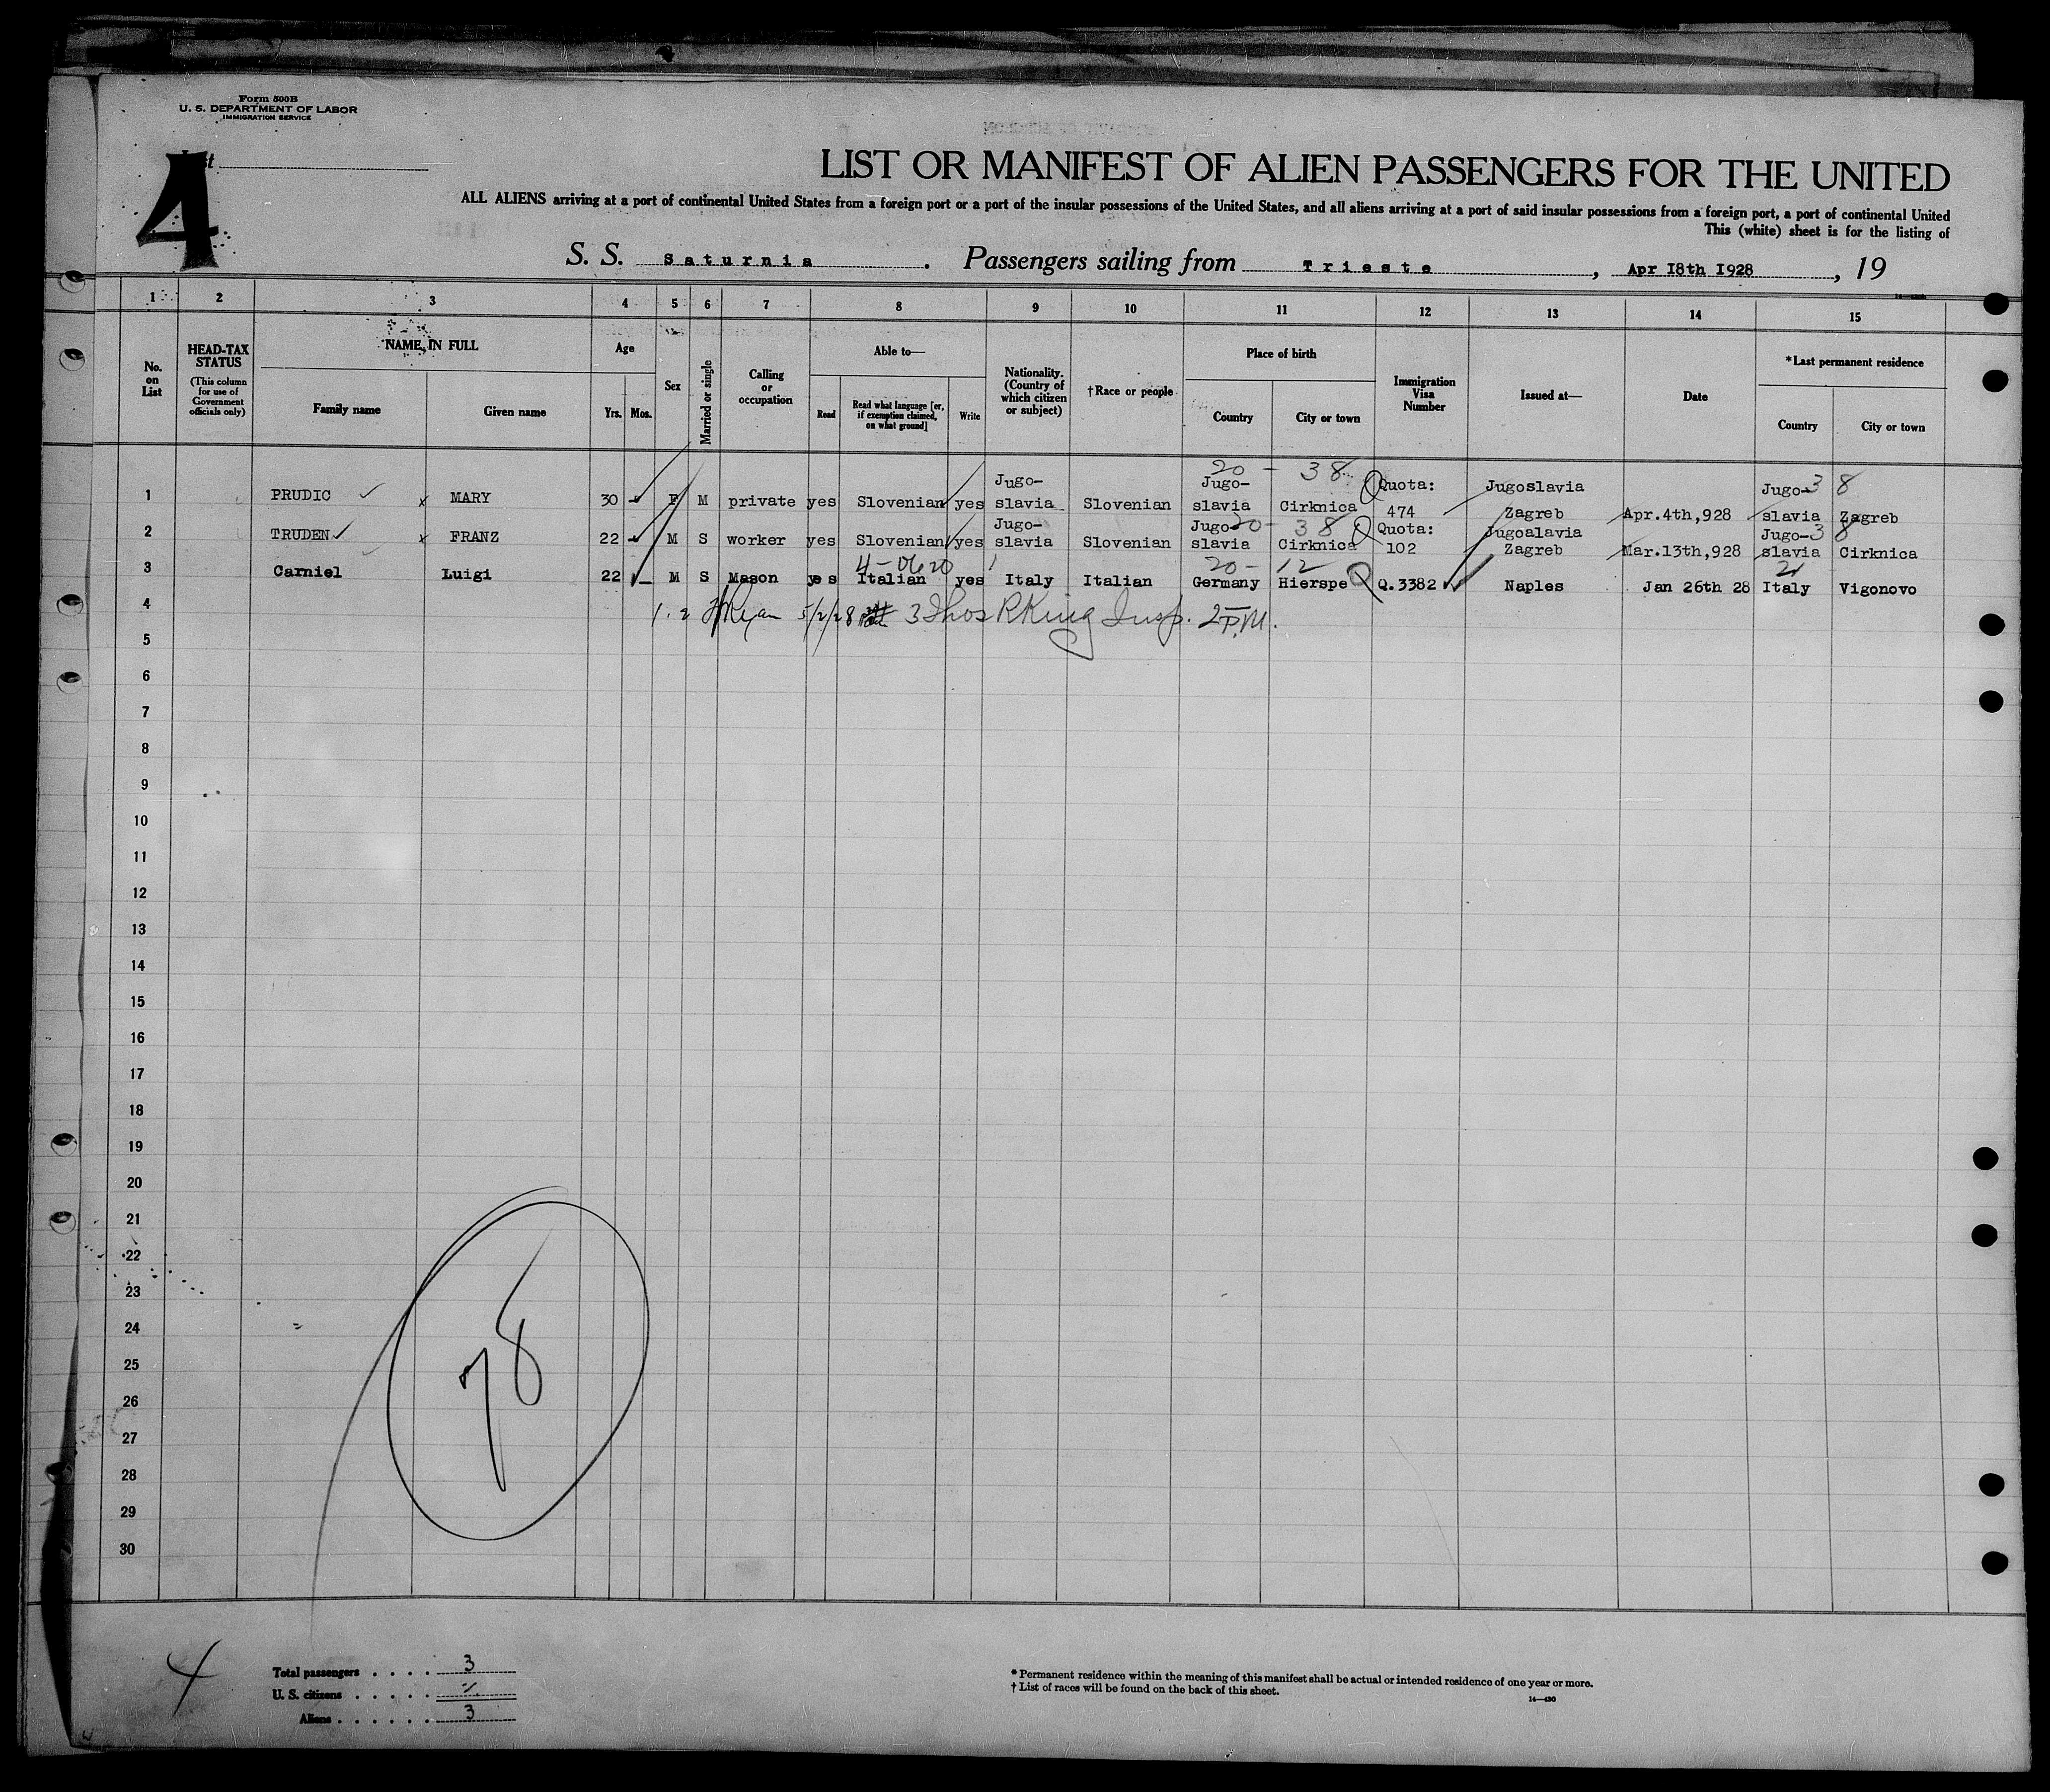 Form 500B
U. S. DEPARTMENT OF LABOR
IMMIGRATION SERVICE
4
LIST OR MANIFEST OF ALIEN PASSENGERS FOR THE UNITED
ALL ALIENS arriving at a port of continental United States from a foreign port or a port of the insular possessions of the United States, and all aliens arriving at a port of said insular possessions from a foreign port, a port of continental United
This (white) sheet is for the listing of
S. S. Saturnia. Passengers sailing from Trieste, Apr 18th 1928, 19
14—430b
1 2 3 4 5 6 7 8 9 10 11 12 13 14 15
No. on List
HEAD-TAX STATUS
(This column for use of Government officials only)
NAME IN FULL
Family name Given name
Age
Yrs. Mos.
Sex
Married or single
Calling or occupation
Able to—
Read
Read what language [or, if exemption claimed, on what ground]
Write
Nationality. (Country of which citizen or subject)
†Race or people
Place of birth
Country City or town
Immigration Visa Number
Issued at—
Date
*Last permanent residence
Country City or town
20 - 38
1 PRUDIC x MARY 30 F M private yes Slovenian yes Jugo-slavia Slovenian Jugo-slavia Cirknica Q Quota: 474 Jugoslavia Zagreb Apr.4th,928 Jugo-slavia Zagreb
38
20 - 38
2 TRUDEN x FRANZ 22 M S worker yes Slovenian yes Jugo-slavia Slovenian Jugo-slavia Cirknica Q Quota: 102 Jugoalavia Zagreb Mar.13th,928 Jugo-slavia Cirknica
38
4-0620 20- 12 21
3 Carniel Luigi 22 M S Mason yes Italian yes Italy Italian Germany Hierspe Q Q.3382 Naples Jan 26th 28 Italy Vigonovo
4
1. 2 Ryan 5/2/28 3 Thos R King Insp. 2 P.M.
5
6
7
8
9
10
11
12
13
14
15
16
17
18
19
20
21
22
23
24
25
26
27
28
29
30
78
4
Total passengers . . . . 3
U. S. citizens . . . . .
Aliens . . . . . . 3
* Permanent residence within the meaning of this manifest shall be actual or intended residence of one year or more.
† List of races will be found on the back of this sheet.
14—430